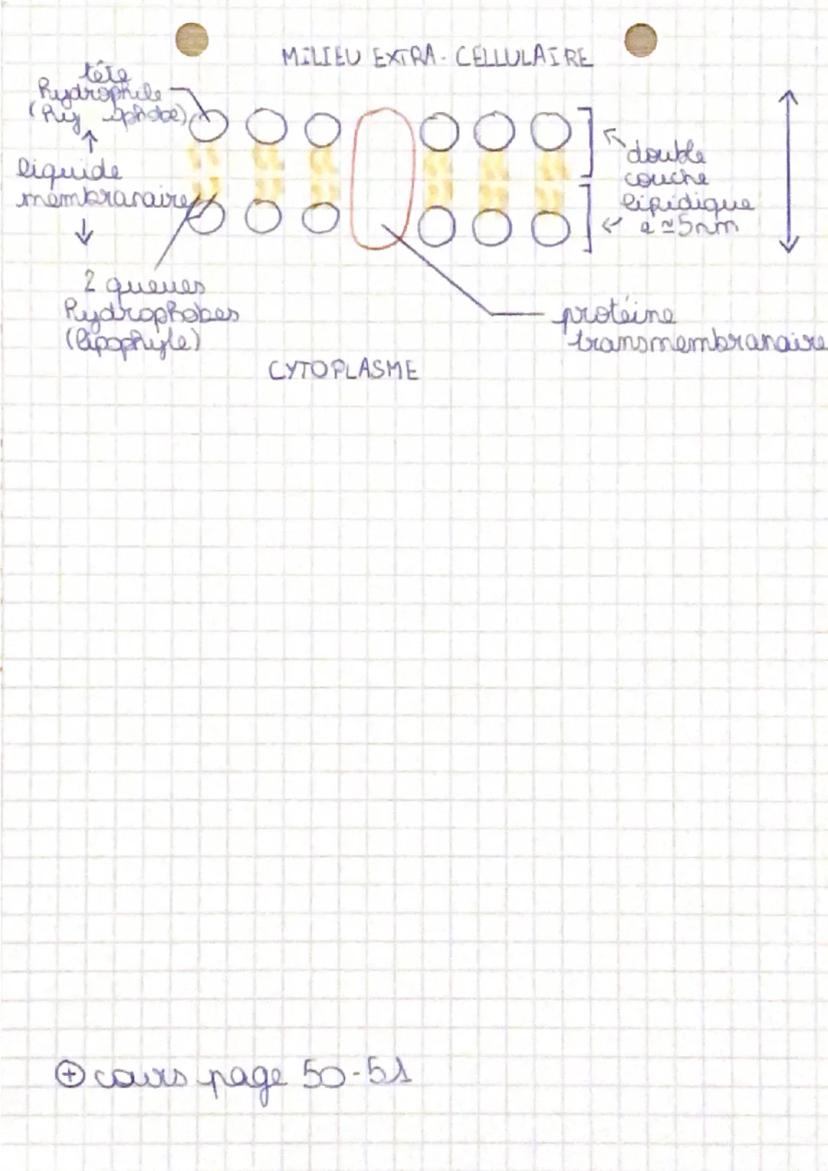 MILIEU EXTRA-CELLULAIRE
tête
hydrophile
liquide
membranaire
2 queues
hydrophobes
(lipophyle)
double
couche
lipidique
≃5nm
protéine
transmembranaire
CYTOPLASME
⊕ cours page 50-51